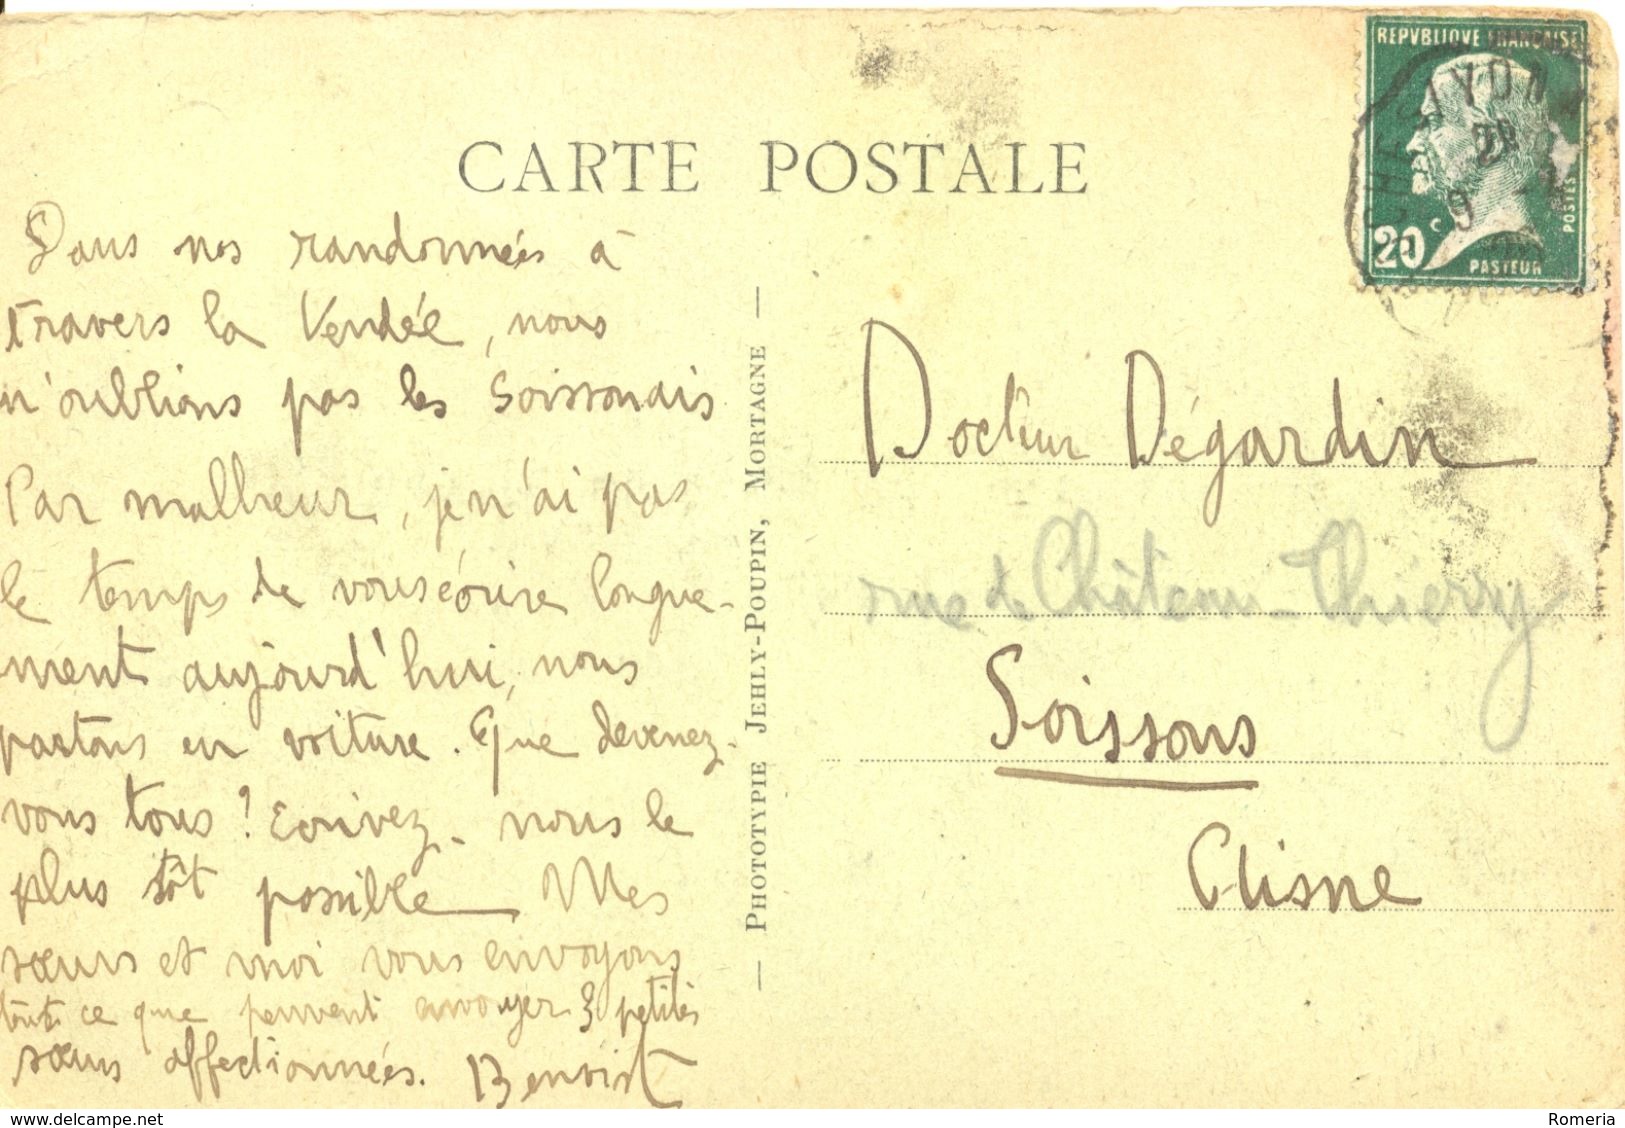 CARTE POSTALE
REPVBLIQVE FRANÇAISE
20 c
POSTES
PASTEUR
Dans nos randonnées à
travers la Vendée, nous
n'oublions pas les Soissonais
Par malheur, je n'ai pas
le temps de vous écrire longue-
ment aujourd'hui, nous
partons en voiture. Que devenez-
vous tous ? Ecrivez-nous le
plus tôt possible Mes
sœurs et moi vous envoyons
tout ce que peuvent envoyer 3 petites
sœurs affectionnées. Benoist
— PHOTOTYPIE JEHLY-POUPIN, MORTAGNE —
Docteur Dégardin
rue de Château-Thierry
Soissons
Aisne
www.delcampe.net
Romeria